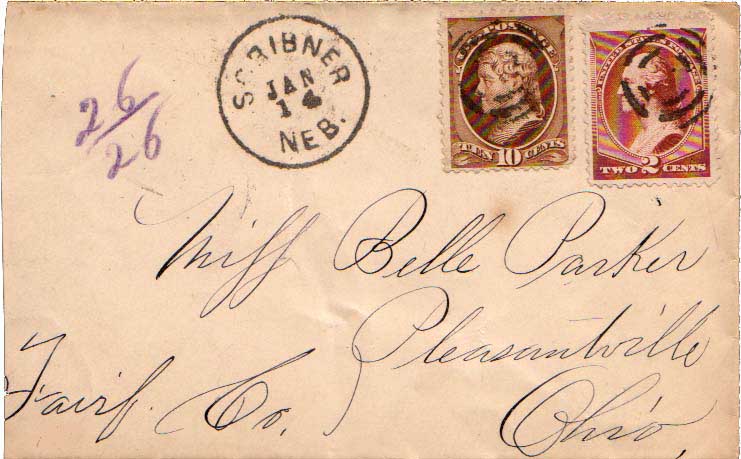 SCRIBNER
JAN
14
NEB.
U.S. POSTAGE
TEN 10 CENTS
UNITED STATES POSTAGE
TWO 2 CENTS
26/26
Miss Belle Parker
Pleasantville
Fairf. Co. Ohio,